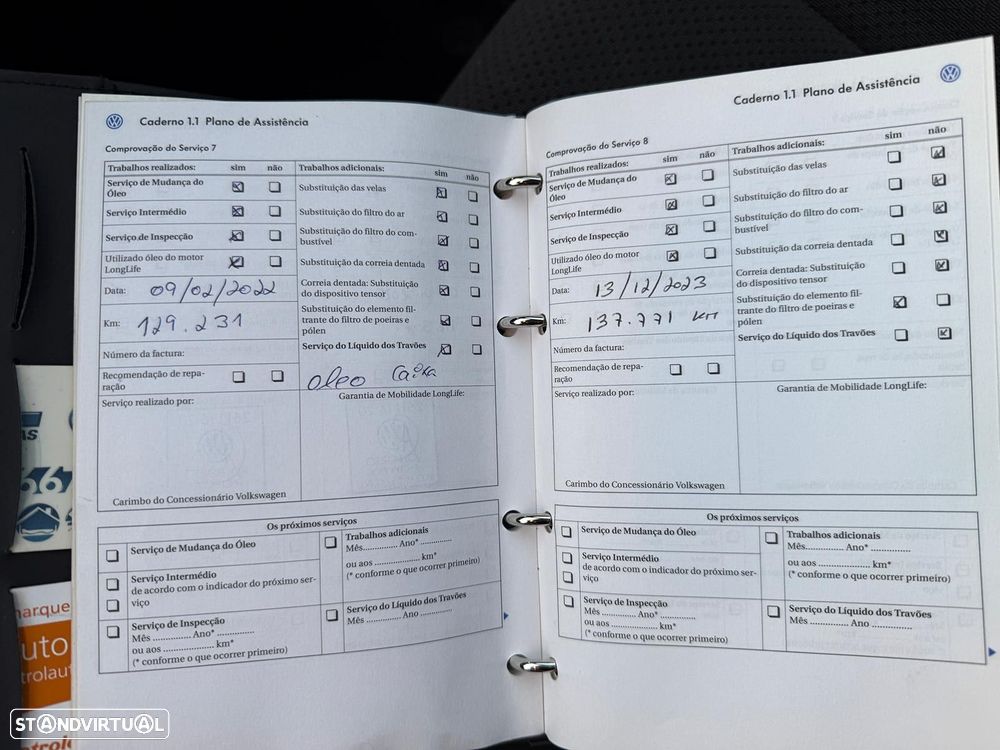 Caderno 1.1 Plano de Assistência
Comprovação do Serviço 7
Trabalhos realizados: sim não
Serviço de Mudança do
Óleo
Serviço Intermédio
Serviço de Inspecção
Utilizado óleo do motor
LongLife
Data: 09/02/2022
Km: 129.231
Número da factura:
Recomendação de repa-
ração
Serviço realizado por:
Carimbo do Concessionário Volkswagen
Trabalhos adicionais: sim não
Substituição das velas
Substituição do filtro do ar
Substituição do filtro do com-
bustível
Substituição da correia dentada
Correia dentada: Substituição
do dispositivo tensor
Substituição do elemento fil-
trante do filtro de poeiras e
pólen
Serviço do Líquido dos Travões
oleo caixa
Garantia de Mobilidade LongLife:
Os próximos serviços
Serviço de Mudança do Óleo
Serviço Intermédio
de acordo com o indicador do próximo ser-
viço
Serviço de Inspecção
Mês ............... Ano* ...............
ou aos ..................... km*
(* conforme o que ocorrer primeiro)
Trabalhos adicionais
Mês.............. Ano* .............
ou aos .................... km*
(* conforme o que ocorrer primeiro)
Serviço do Líquido dos Travões
Mês ............... Ano ...............
Caderno 1.1 Plano de Assistência
Comprovação do Serviço 8
Trabalhos realizados: sim não
Serviço de Mudança do
Óleo
Serviço Intermédio
Serviço de Inspecção
Utilizado óleo do motor
LongLife
Data: 13/12/2023
Km: 137.771 KM
Número da factura:
Recomendação de repa-
ração
Serviço realizado por:
Carimbo do Concessionário Volkswagen
Trabalhos adicionais: sim não
Substituição das velas
Substituição do filtro do ar
Substituição do filtro do com-
bustível
Substituição da correia dentada
Correia dentada: Substituição
do dispositivo tensor
Substituição do elemento fil-
trante do filtro de poeiras e
pólen
Serviço do Líquido dos Travões
Garantia de Mobilidade LongLife:
Os próximos serviços
Serviço de Mudança do Óleo
Serviço Intermédio
de acordo com o indicador do próximo ser-
viço
Serviço de Inspecção
Mês ............... Ano* ...............
ou aos ..................... km*
(* conforme o que ocorrer primeiro)
Trabalhos adicionais
Mês.............. Ano* ...............
ou aos .................... km*
(* conforme o que ocorrer primeiro)
Serviço do Líquido dos Travões
Mês ............... Ano ...............
AS
667
marque
uto
trolaut
STANDVIRTUAL